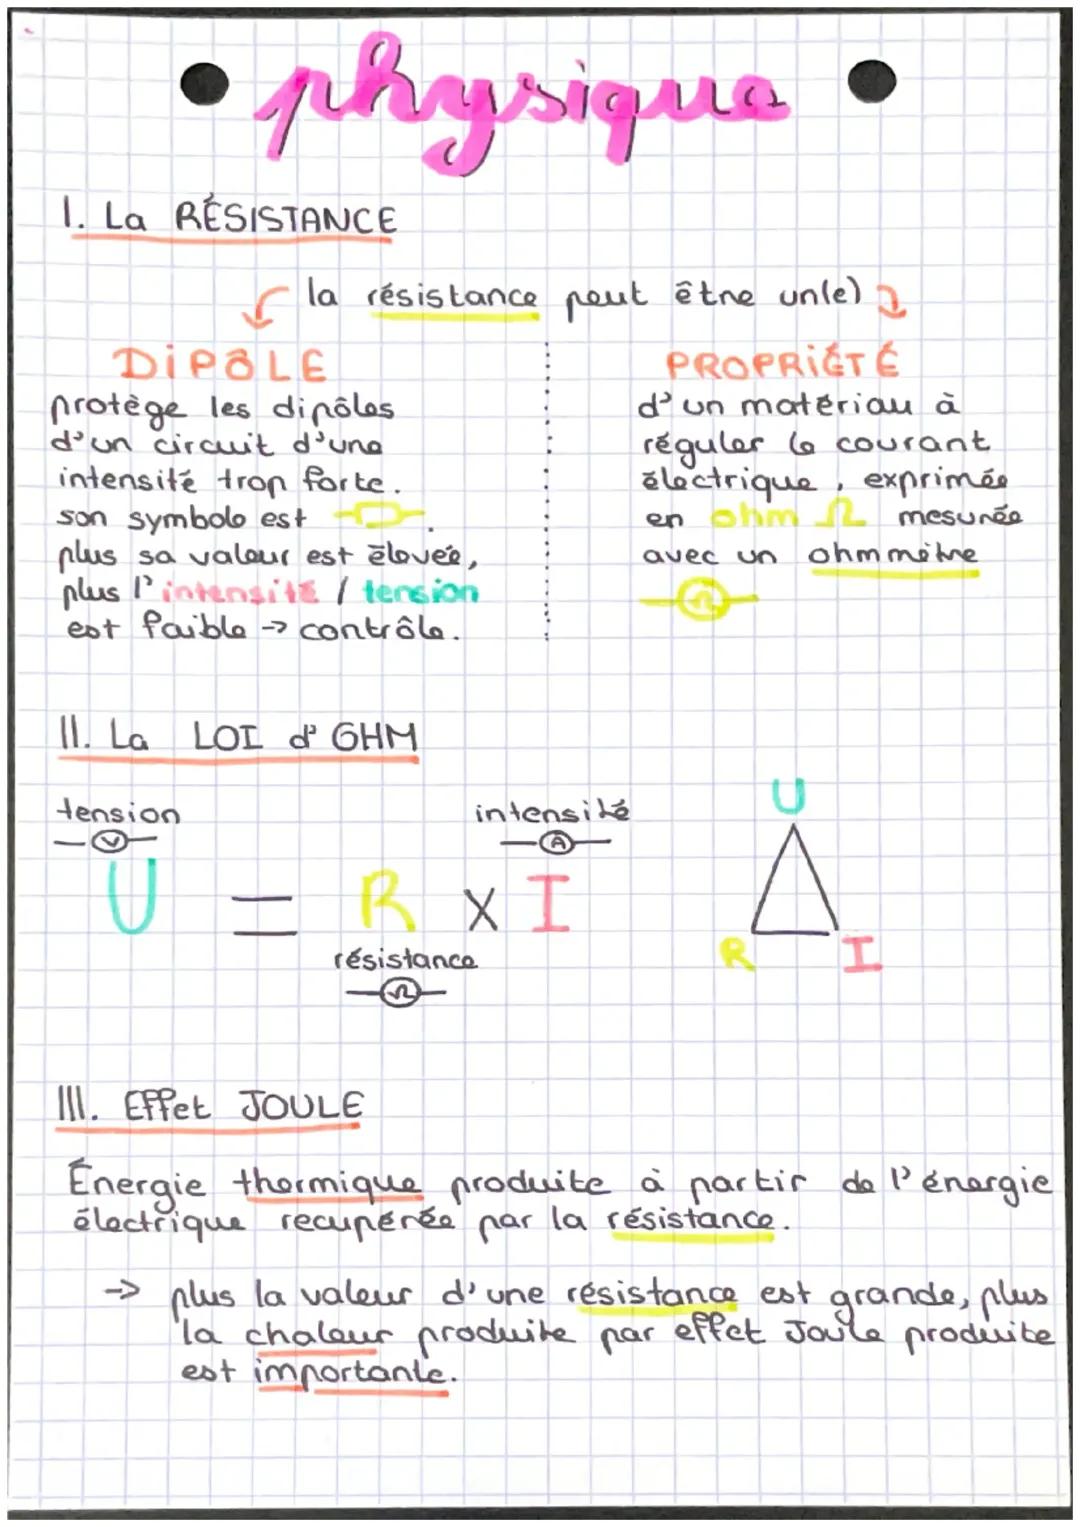 physique
I. La RÉSISTANCE
la résistance peut être un(e)
DiPÔLE
protège les dipôles
d'un circuit d'une
intensité trop forte.
son symbole est
plus sa valeur est élevée,
plus l'intensité / tension
est faible → contrôle.
PROPRiÉTÉ
d'un matériau à
réguler le courant
électrique, exprimée
en ohm Ω mesurée
avec un ohmmètre
Ω
II. La LOI d'OHM
tension
V
intensité
A
U = R X I
résistance
Ω
U
R I
III. Effet JOULE
Énergie thermique produite à partir de l'énergie
électrique recupérée par la résistance.
→ plus la valeur d'une résistance est grande, plus
la chaleur produite par effet Joule produite
est importante.